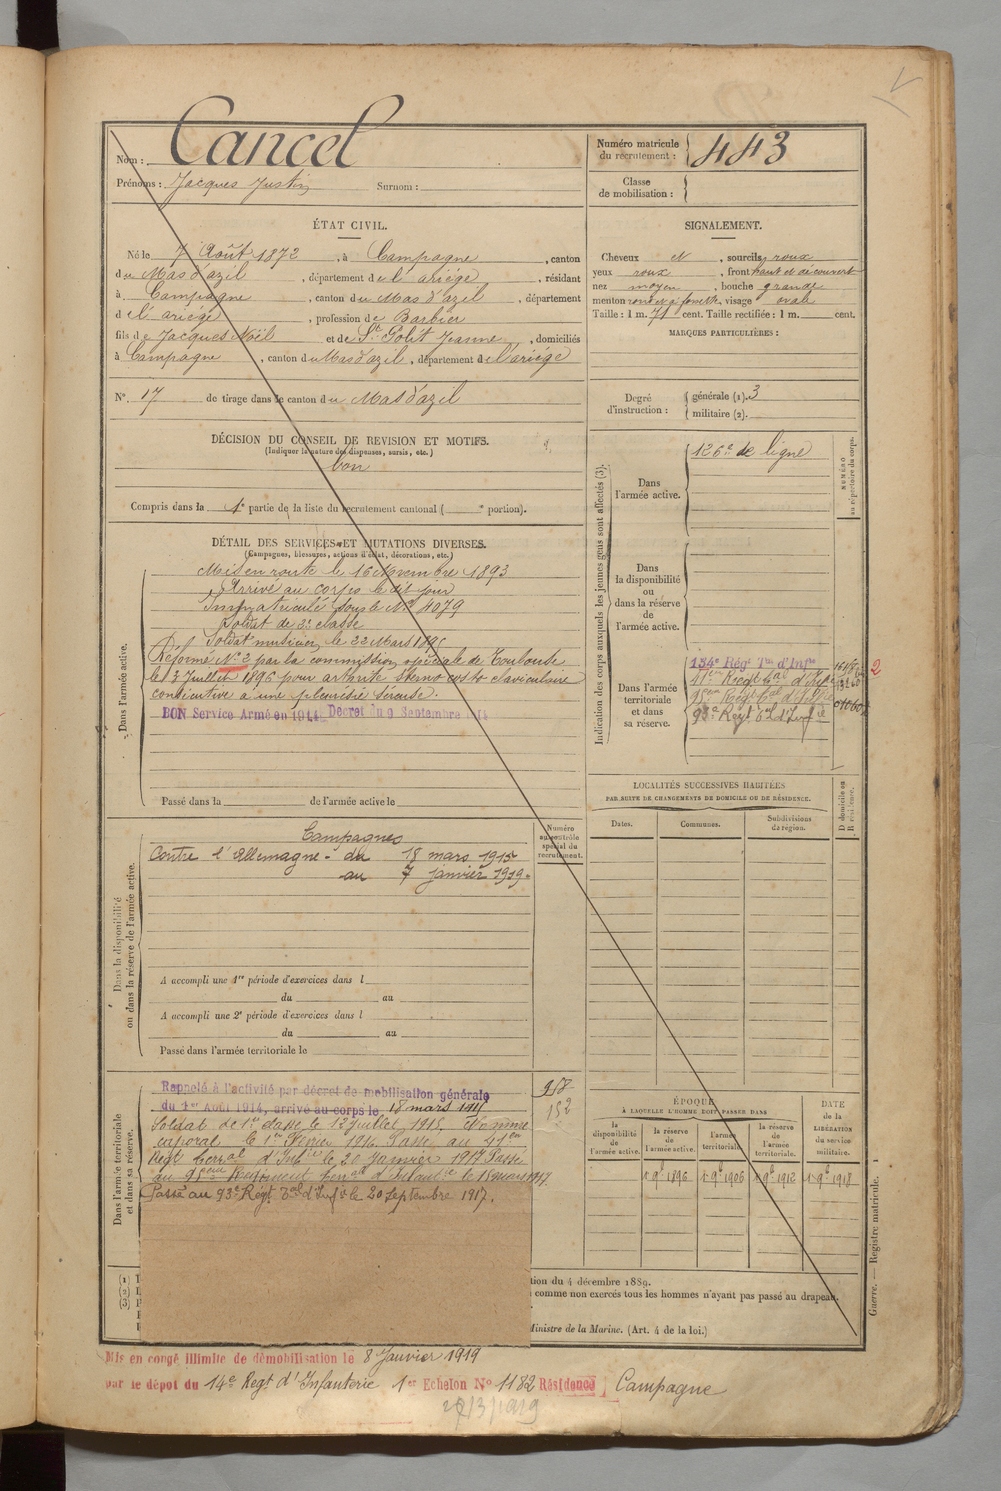 Nom : Cancel
Prénoms : Jacques Justin Surnom :
Numéro matricule du recrutement : 443
Classe de mobilisation :
ÉTAT CIVIL.
Né le 7 Août 1872, à Campagne, canton
du Mas d'azil, département de l'ariége, résidant
à Campagne, canton du Mas d'azil, département
de l'ariége, profession de Barbier
fils de Jacques Noël et de St Golit Jeanne, domiciliés
à Campagne, canton du Mas d'azil, département de l'ariége
N° 17 de tirage dans le canton du Mas d'azil
SIGNALEMENT.
Cheveux N, sourcils roux
yeux roux, front haut et découvert
nez moyen, bouche grande
menton rond et à fossette, visage ovale
Taille : 1 m. 71 cent. Taille rectifiée : 1 m. cent.
MARQUES PARTICULIÈRES :
Degré d'instruction : générale (1). 3
militaire (2).
DÉCISION DU CONSEIL DE REVISION ET MOTIFS.
(Indiquer la nature des dispenses, sursis, etc.)
bon
Compris dans la 1e partie de la liste du recrutement cantonal ( e portion).
DÉTAIL DES SERVICES ET MUTATIONS DIVERSES.
(Campagnes, blessures, actions d'éclat, décorations, etc.)
Dans l'armée active.
Mis en route le 16 Novembre 1893
Arrivé au corps le dit jour
Immatriculé sous le No 4079
Soldat de 2e classe
Soldat musicien le 22 Mars 1895
Réformé No 2 par la commission spéciale de Toulouse
le 3 Juillet 1896 pour arthrite sterno costo claviculaire
consécutive à une pleurésie séreuse.
BON Service Armé en 1914 Décret du 9 Septembre 1914
Passé dans la de l'armée active le
Dans la disponibilité ou dans la réserve de l'armée active.
Campagnes
Contre l'Allemagne - du 18 mars 1915
au 7 janvier 1919.
Numéro au contrôle spécial du recrutement.
A accompli une 1re période d'exercices dans l
du au
A accompli une 2e période d'exercices dans l
du au
Passé dans l'armée territoriale le
Dans l'armée territoriale et dans sa réserve.
Rappelé à l'activité par décret de mobilisation générale
du 1er Août 1914, arrivé au corps le 18 mars 1915
Soldat de 1re classe le 12 Juillet 1915. Nommé
caporal le 1er Février 1916. Passé au 41em
Regt terral d'Infie le 20 Janvier 1917 Passé
au 95eme Régiment terral d'Infantie le 15 mars 1917.
Passé au 93e Régt Tal d'Inf ie le 20 Septembre 1917.
152
Indication des corps auxquels les jeunes gens sont affectés (3).
Dans l'armée active.
126e de ligne
NUMÉRO au répertoire du corps.
Dans la disponibilité ou dans la réserve de l'armée active.
Dans l'armée territoriale et dans sa réserve.
134e Régt Tal d'Infie
41em Regt tal d'Infie
95em Regt tal d'Infie
93e Régt Tal d'Infie
2
LOCALITÉS SUCCESSIVES HABITÉES
PAR SUITE DE CHANGEMENTS DE DOMICILE OU DE RÉSIDENCE.
D domicile ou R résidence.
Dates. Communes. Subdivisions de région.
ÉPOQUE
À LAQUELLE L'HOMME DOIT PASSER DANS
la disponibilité de l'armée active.
la réserve de l'armée active.
l'armée territoriale.
la réserve de l'armée territoriale.
DATE de la LIBÉRATION du service militaire.
1 9e 1896 1 9e 1906 1 9e 1912 1 9e 1918
(1)
(2)
(3)
tion du 4 décembre 1889.
comme non exercés tous les hommes n'ayant pas passé au drapeau.
Ministre de la Marine. (Art. 4 de la loi.)
Guerre. — Registre matricule.
Mis en congé illimité de démobilisation le 8 Janvier 1919
par le dépôt du 14e Regt d'Infanterie 1er Echelon No 1182 Résidence Campagne